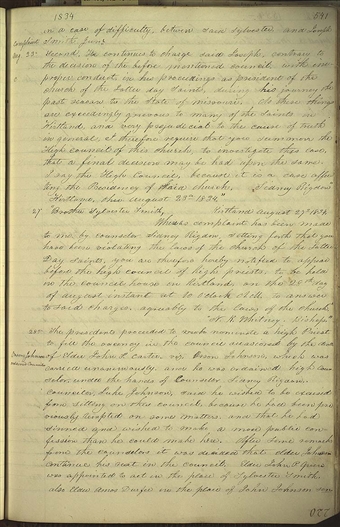 1834
in a case of difficulty, between said Sylvester and Joseph
Smith Junr.
Complaint
Aug 23rd Second. He continues to charge said Joseph, contrary to
the decision of the before mentioned council with im-
proper conduct in his proceedings as president of the
church of the Latter day Saints, during his journey the
past season to the State of Missouri. As these things
are exceedingly grievous to many of the Saints in
Kirtland, and very prejudicial to the cause of truth
in general, I therefore require that you summon the
High council of this church, to investigate this case,
that a final decision may be had upon the same.
I say the High Council, because it is a case affec-
ting the Presidency of said church. Sidney Rigdon
Kirtland, Ohio August 23rd 1834.
27 Brother Sylvester Smith, Kirtland August 27th 1834.
Whereas complaint has been made
to me, by counselor Sidney Rigdon, setting forth that you
have been violating the laws of the church of the Latter
Day Saints, you are therefore hereby notified to appear
before the high council of high priests, to be held
in the council house in Kirtland, on the 28th day
of August instant at 10 o'clock A.M. to answer
to said charges agreeably to the laws of the church.
N. K. Whitney, Bishop.
28th The presidents proceeded to nominate a high Priest
to fill the vacancy in the council occasioned by the death
of Elder John S. Carter, viz; Orson Johnson, which was
carried unanimously, and he was ordained high coun-
selor under the hands of Counselor Sidney Rigdon.
Counselor Luke Johnson, said he wished to be excused
from sitting in this council, because he had been pre-
viously tempted on some matters, and that he had
sinned and wished to make a more public con-
fession than he could make here. After some remarks
from the counselors it was decided that elder Johnson
continue his seat in the council. Elder John P. Greene
was appointed to act in the place of Sylvester Smith,
also Elder Amos in the place of John Johnson sen